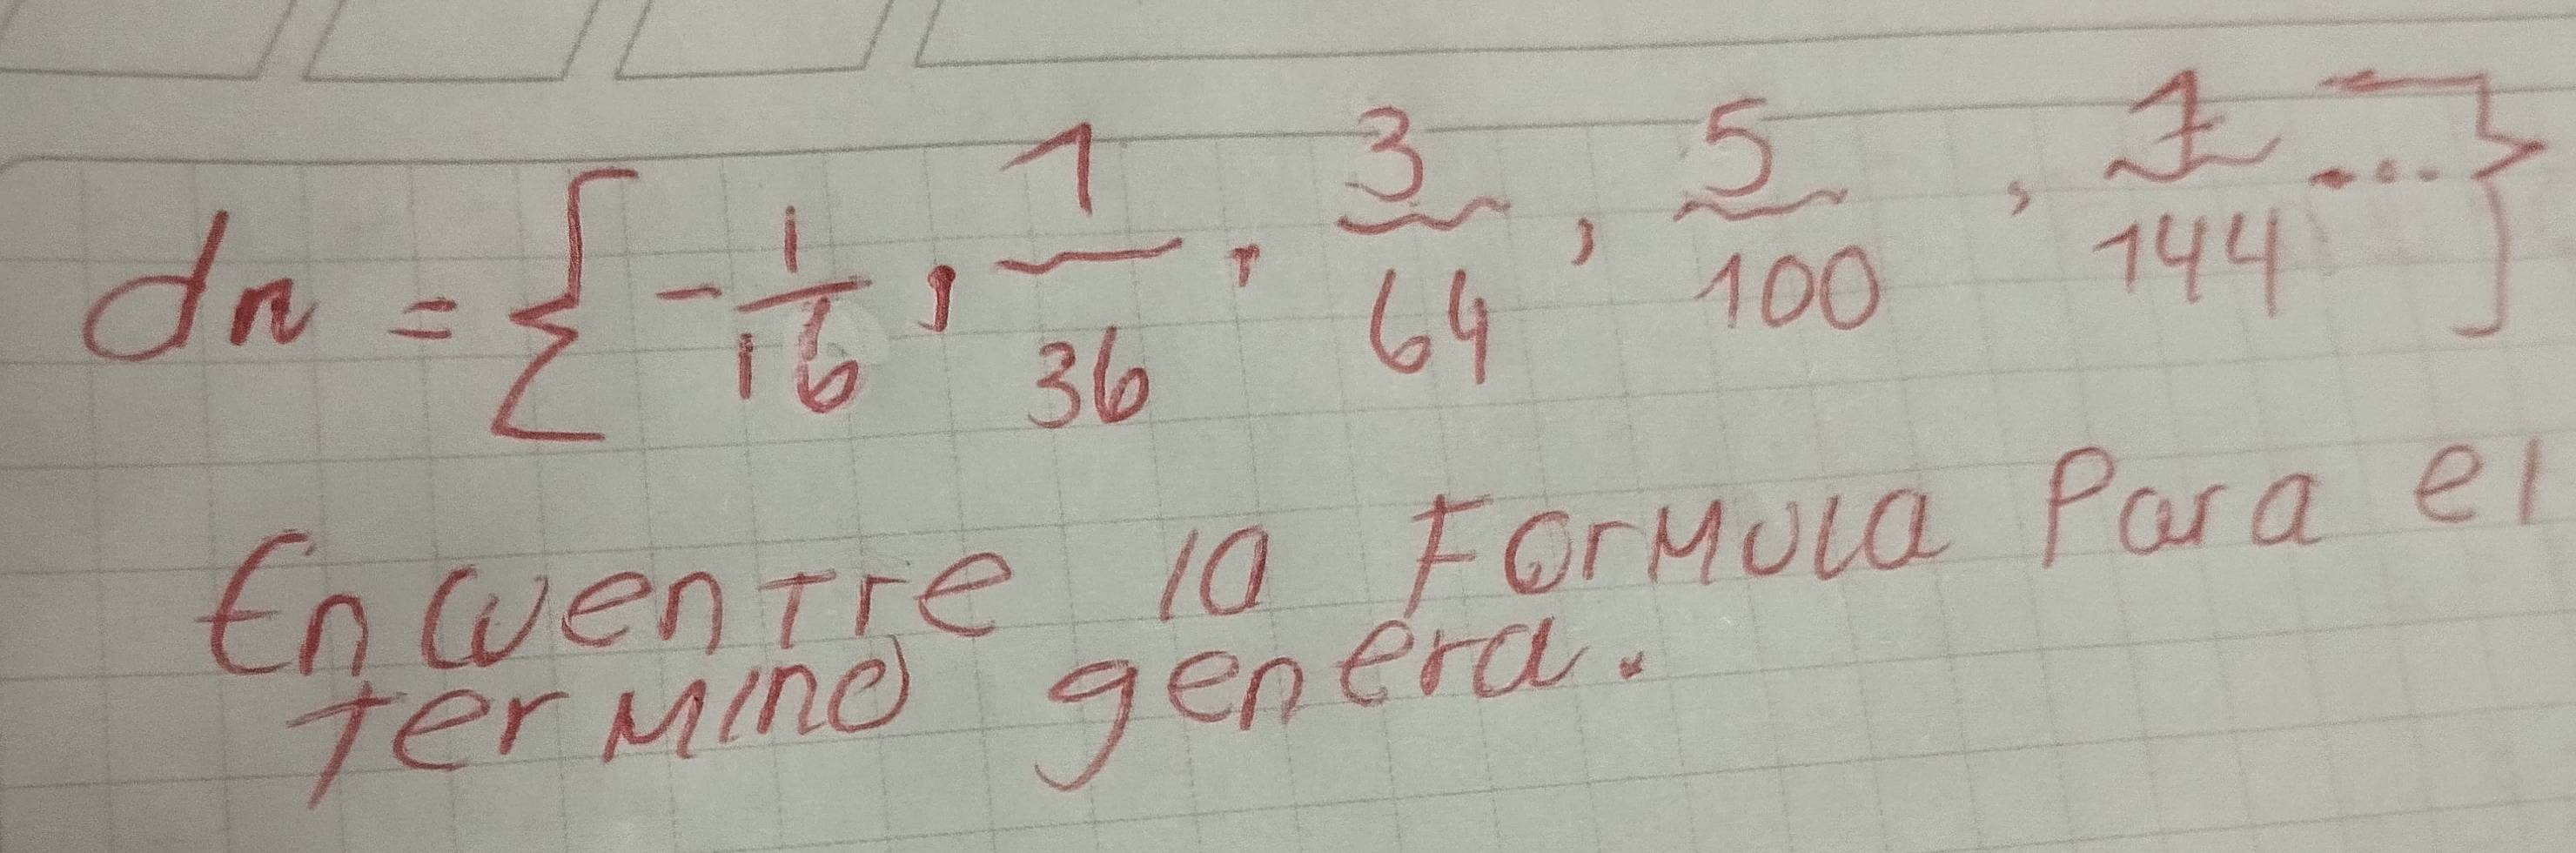 dn = { -1/16, 1/36, 3/64, 5/100, 7/144 ... }
Encuentre la Formula Para el
Termino genera.